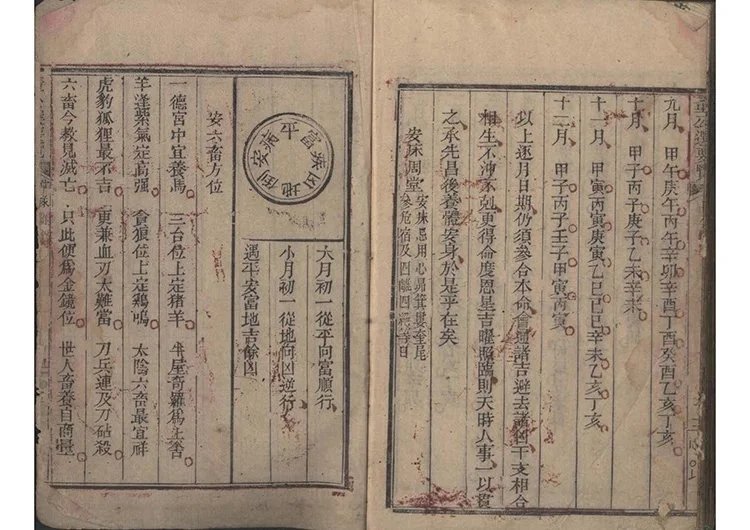 九月 甲午庚午丙午辛卯辛酉丁酉癸酉乙亥丁亥
十月 甲子丙子庚子乙未辛未
十一月 甲寅丙寅庚寅乙巳己巳辛未乙亥丁亥
十二月 甲子丙子壬子甲寅丙寅
以上逐月日期仍須參合本命會迎諸吉避去諸凶干支相合
相生不沖不剋更得命度恩星吉曜照臨則天時人事一以貫
之承先昌後養體安身於是乎在矣
安床周堂 安床忌用心昴箕婁奎尾
參危宿及四離四絕等日
平富床凶地倒安病
大月初一從平向富順行
小月初一從地向凶逆行
遇平安富地吉餘凶
安六畜方位
一德宮中宜養馬 三台位上定猪羊 牛屋奇羅為上舍
羊逢紫氣定高强 會狼位上定鷄鳴 太陰六畜最宜祥
虎豹狐狸最不吉 更兼血刃太難當 刀兵連及刀砧殺
六畜今教見滅亡 只此便為金鏡位 世人畜養自商量